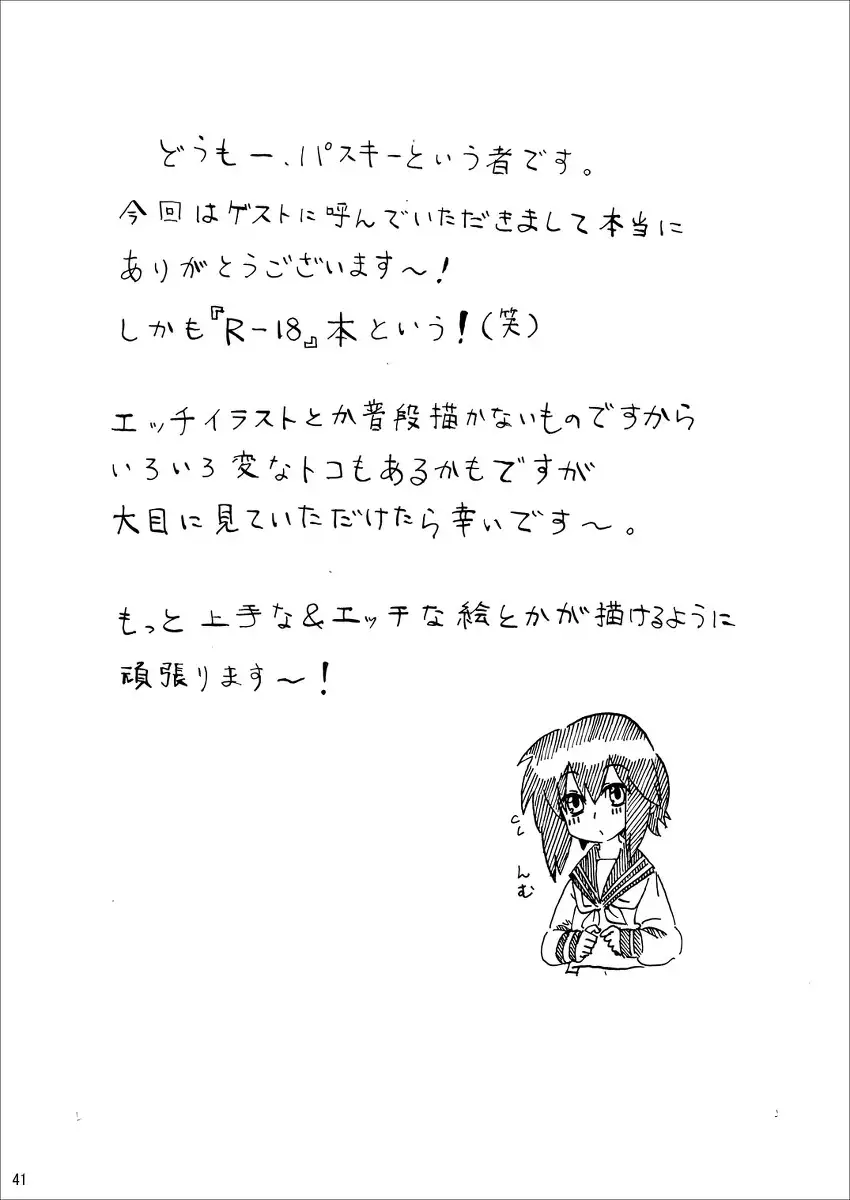 どうもー、パスキーという者です。
今回はゲストに呼んでいただきまして本当に
ありがとうございます〜！
しかも『R-18』本という！(笑)
エッチイラストとか普段描かないものですから
いろいろ変なトコもあるかもですが
大目に見ていただけたら幸いです〜。
もっと上手な&エッチな絵とかが描けるように
頑張ります〜！
んむ
41